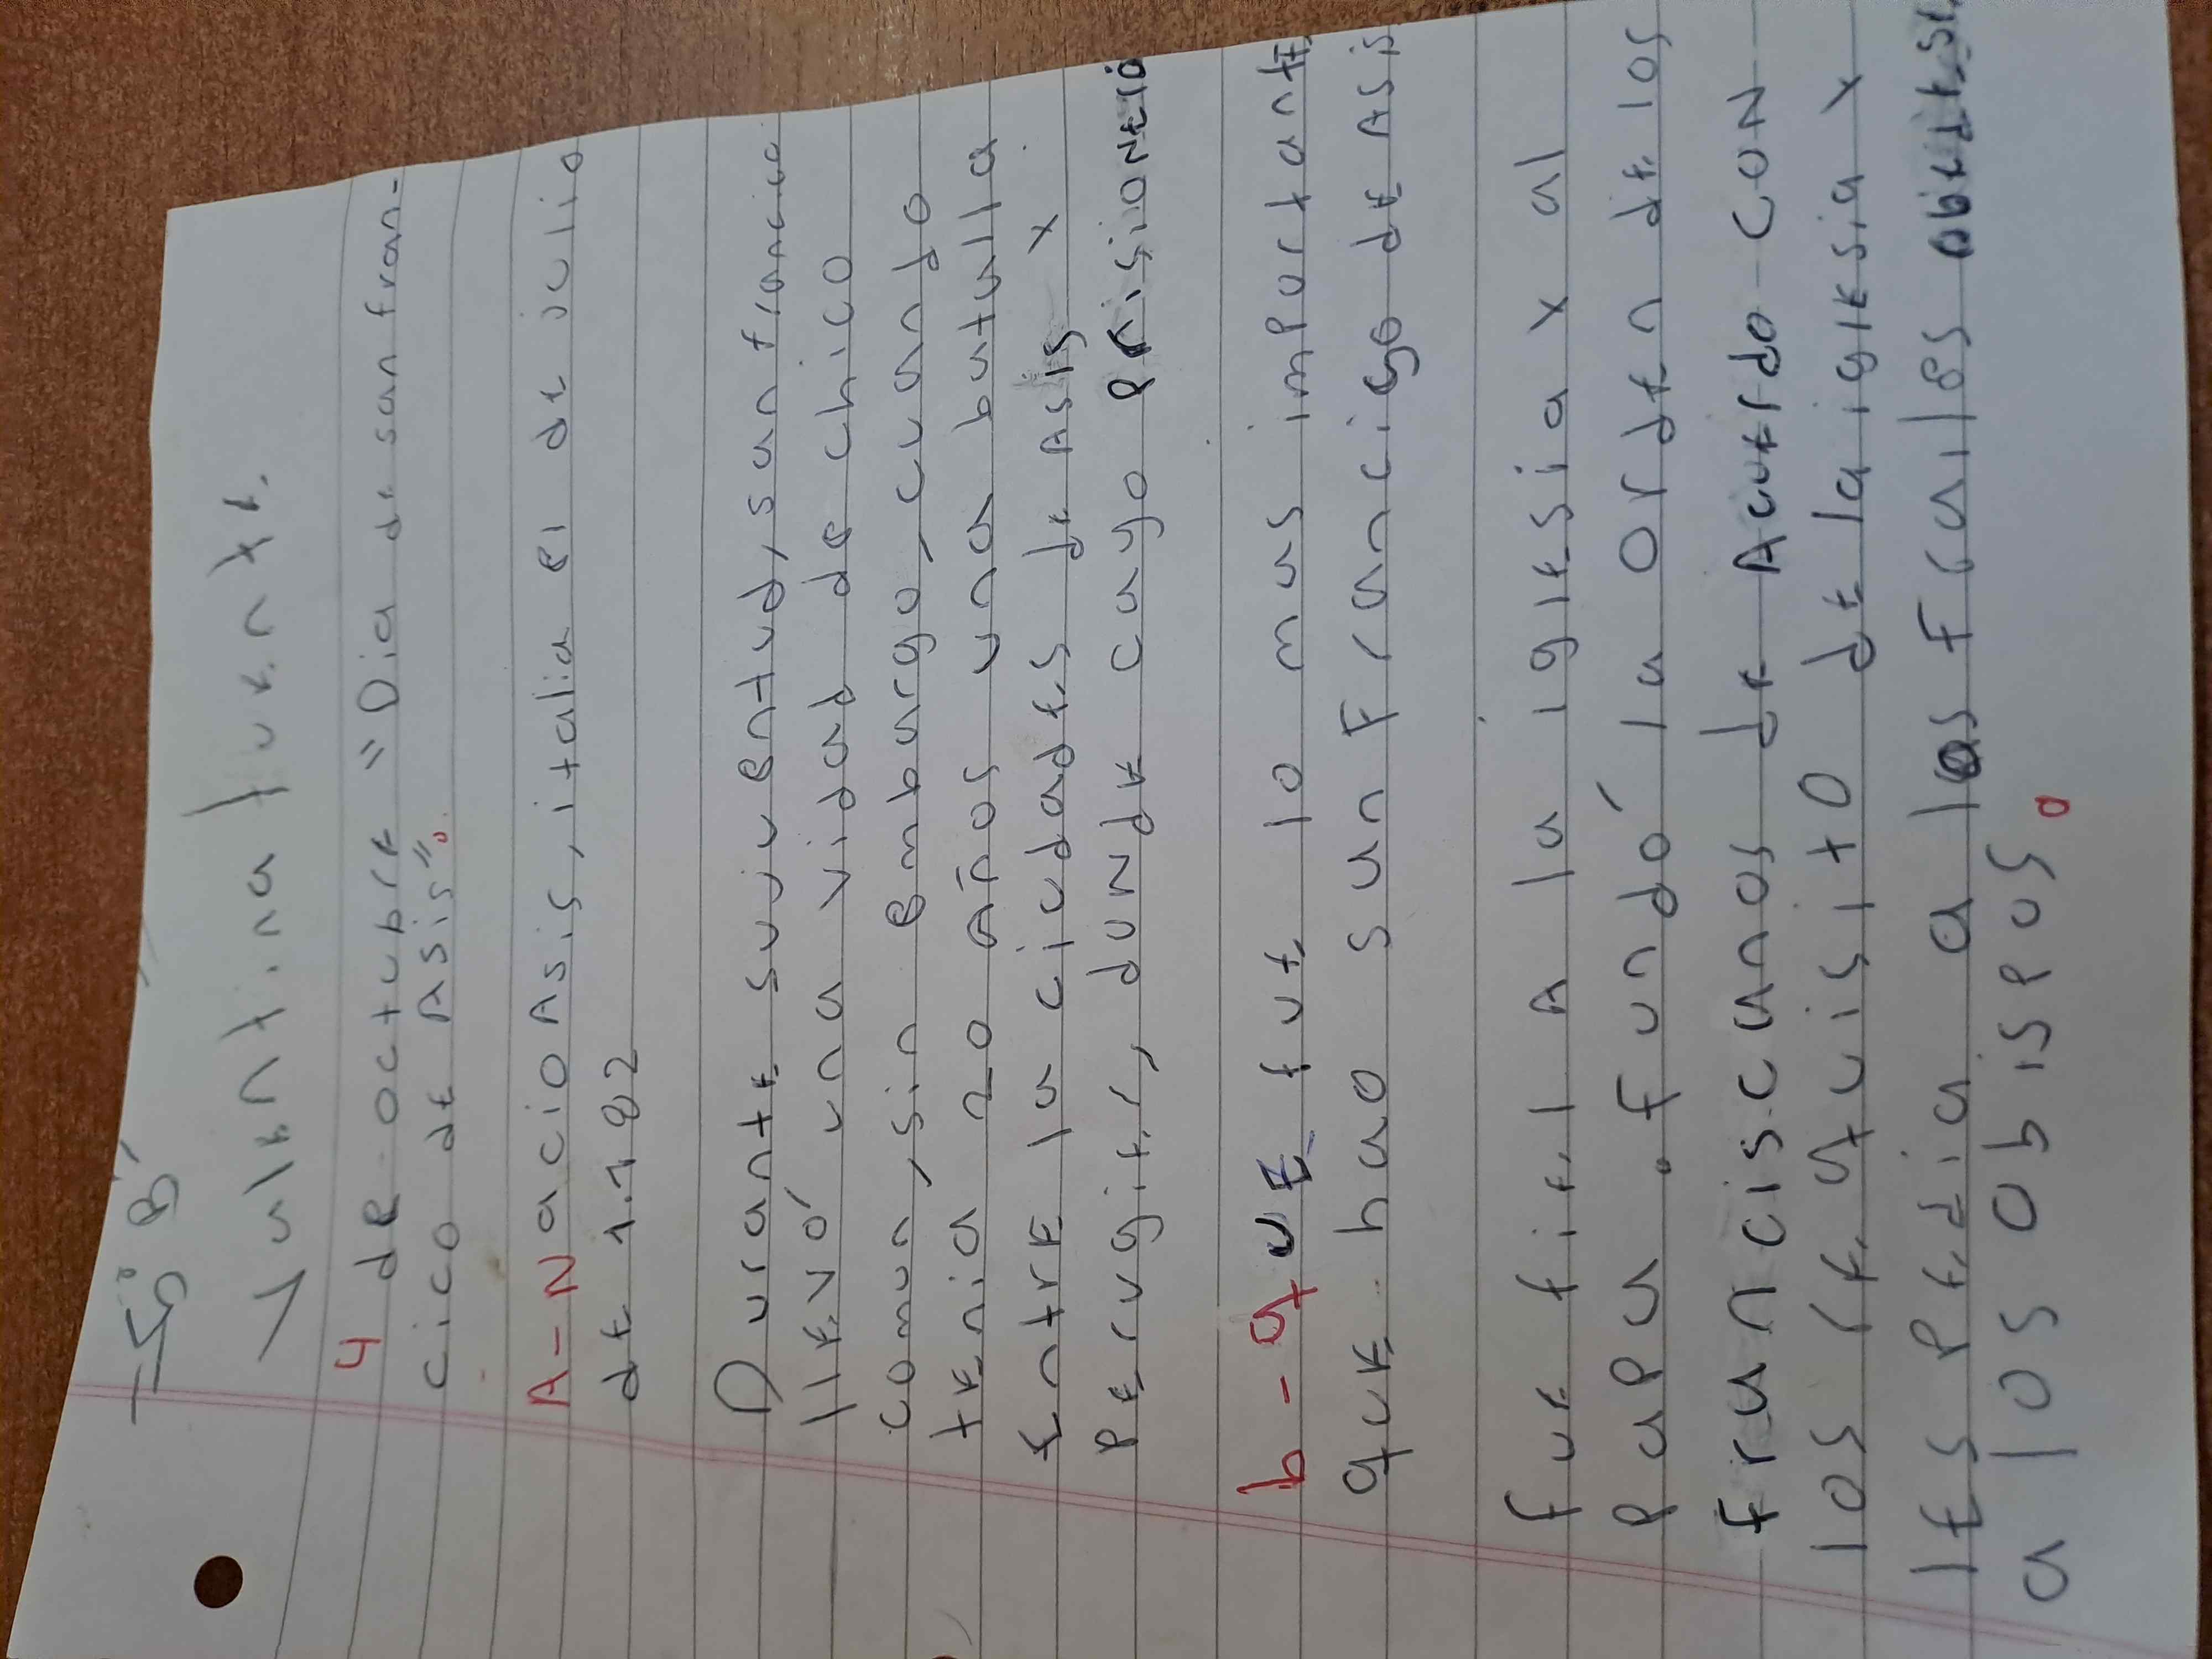 5° B'
Valentina Fuente.
4 de octubre "Dia de san fran-
cico de Asis".
A-Nacio Asis, italia el de julio
de 1.182
Durante suju entud, san francic
llevó una vidad de chico
comun, sin embargo, cuando
tenia 20 Años una batalla
Entre la ciudades de Asis y
Perugier, donde cayo prisionero
b-que fue lo mas importante
que hao san Francigo de Asis
fue fiel A la iglesia y al
papa. Fundó la orden de los
franciscanos de Acuerdo con
los requisito de la iglesia y
les pedia a los Frailes obidesi
a los Obispos.